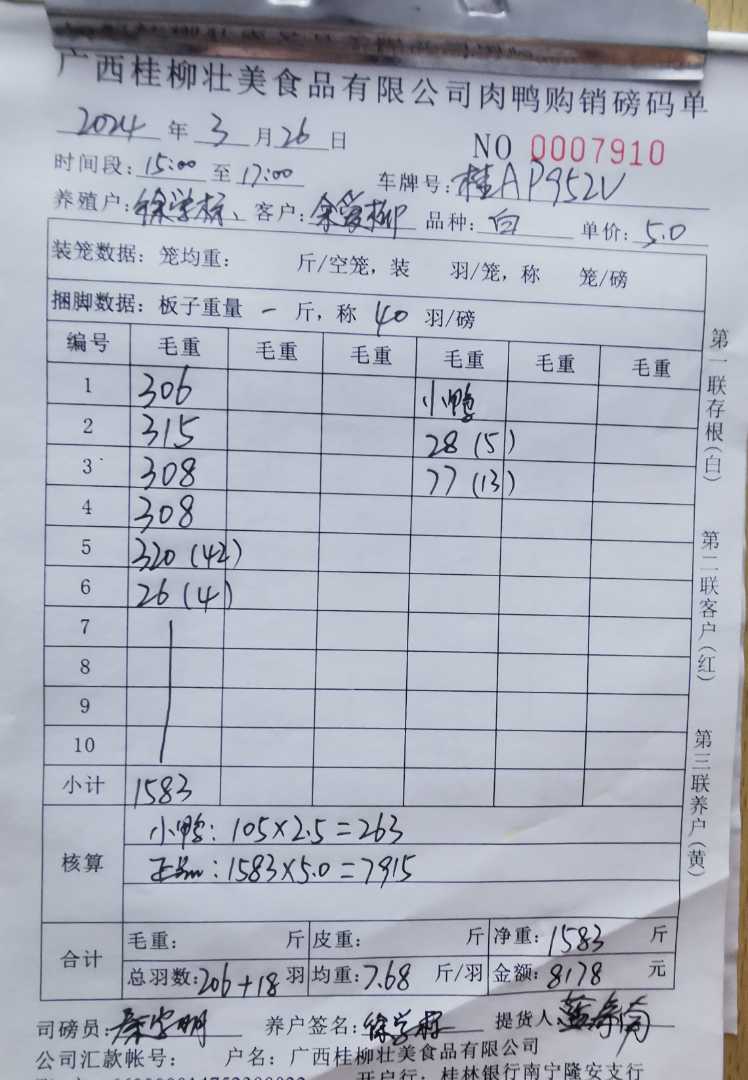 广西桂柳壮美食品有限公司肉鸭购销磅码单
2024 年 3 月 26 日 NO 0007910
时间段: 15:00 至 17:00 车牌号: 桂AP952V
养殖户: 徐学标、 客户: 余爱柳 品种: 白 单价: 5.0
装笼数据: 笼均重: 斤/空笼, 装 羽/笼, 称 笼/磅
捆脚数据: 板子重量 一 斤, 称 40 羽/磅
编号 毛重 毛重 毛重 毛重 毛重 毛重
1 306 小鸭
2 315 28 (5)
3 308 77 (13)
4 308
5 320 (42)
6 26 (4)
7
8
9
10
小计 1583
核算
小鸭: 105×2.5=263
1583×5.0=7915
合计
毛重: 斤 皮重: 斤 净重: 1583 斤
总羽数: 206+18 羽 均重: 7.68 斤/羽 金额: 8178 元
司磅员: 养户签名: 徐学标 提货人
公司汇款帐号: 户名: 广西桂柳壮美食品有限公司
开户行: 桂林银行南宁隆安支行
第一联存根(白)
第二联客户(红)
第三联养户(黄)